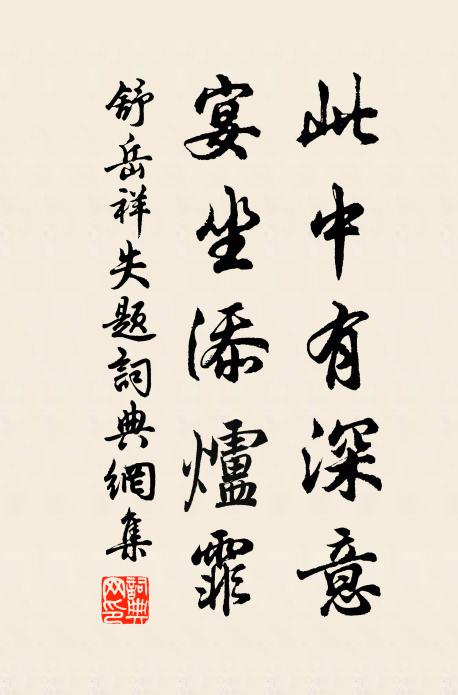 此中有深意
宴坐添爐霏
舒岳祥失题詞典網集
詞典网印